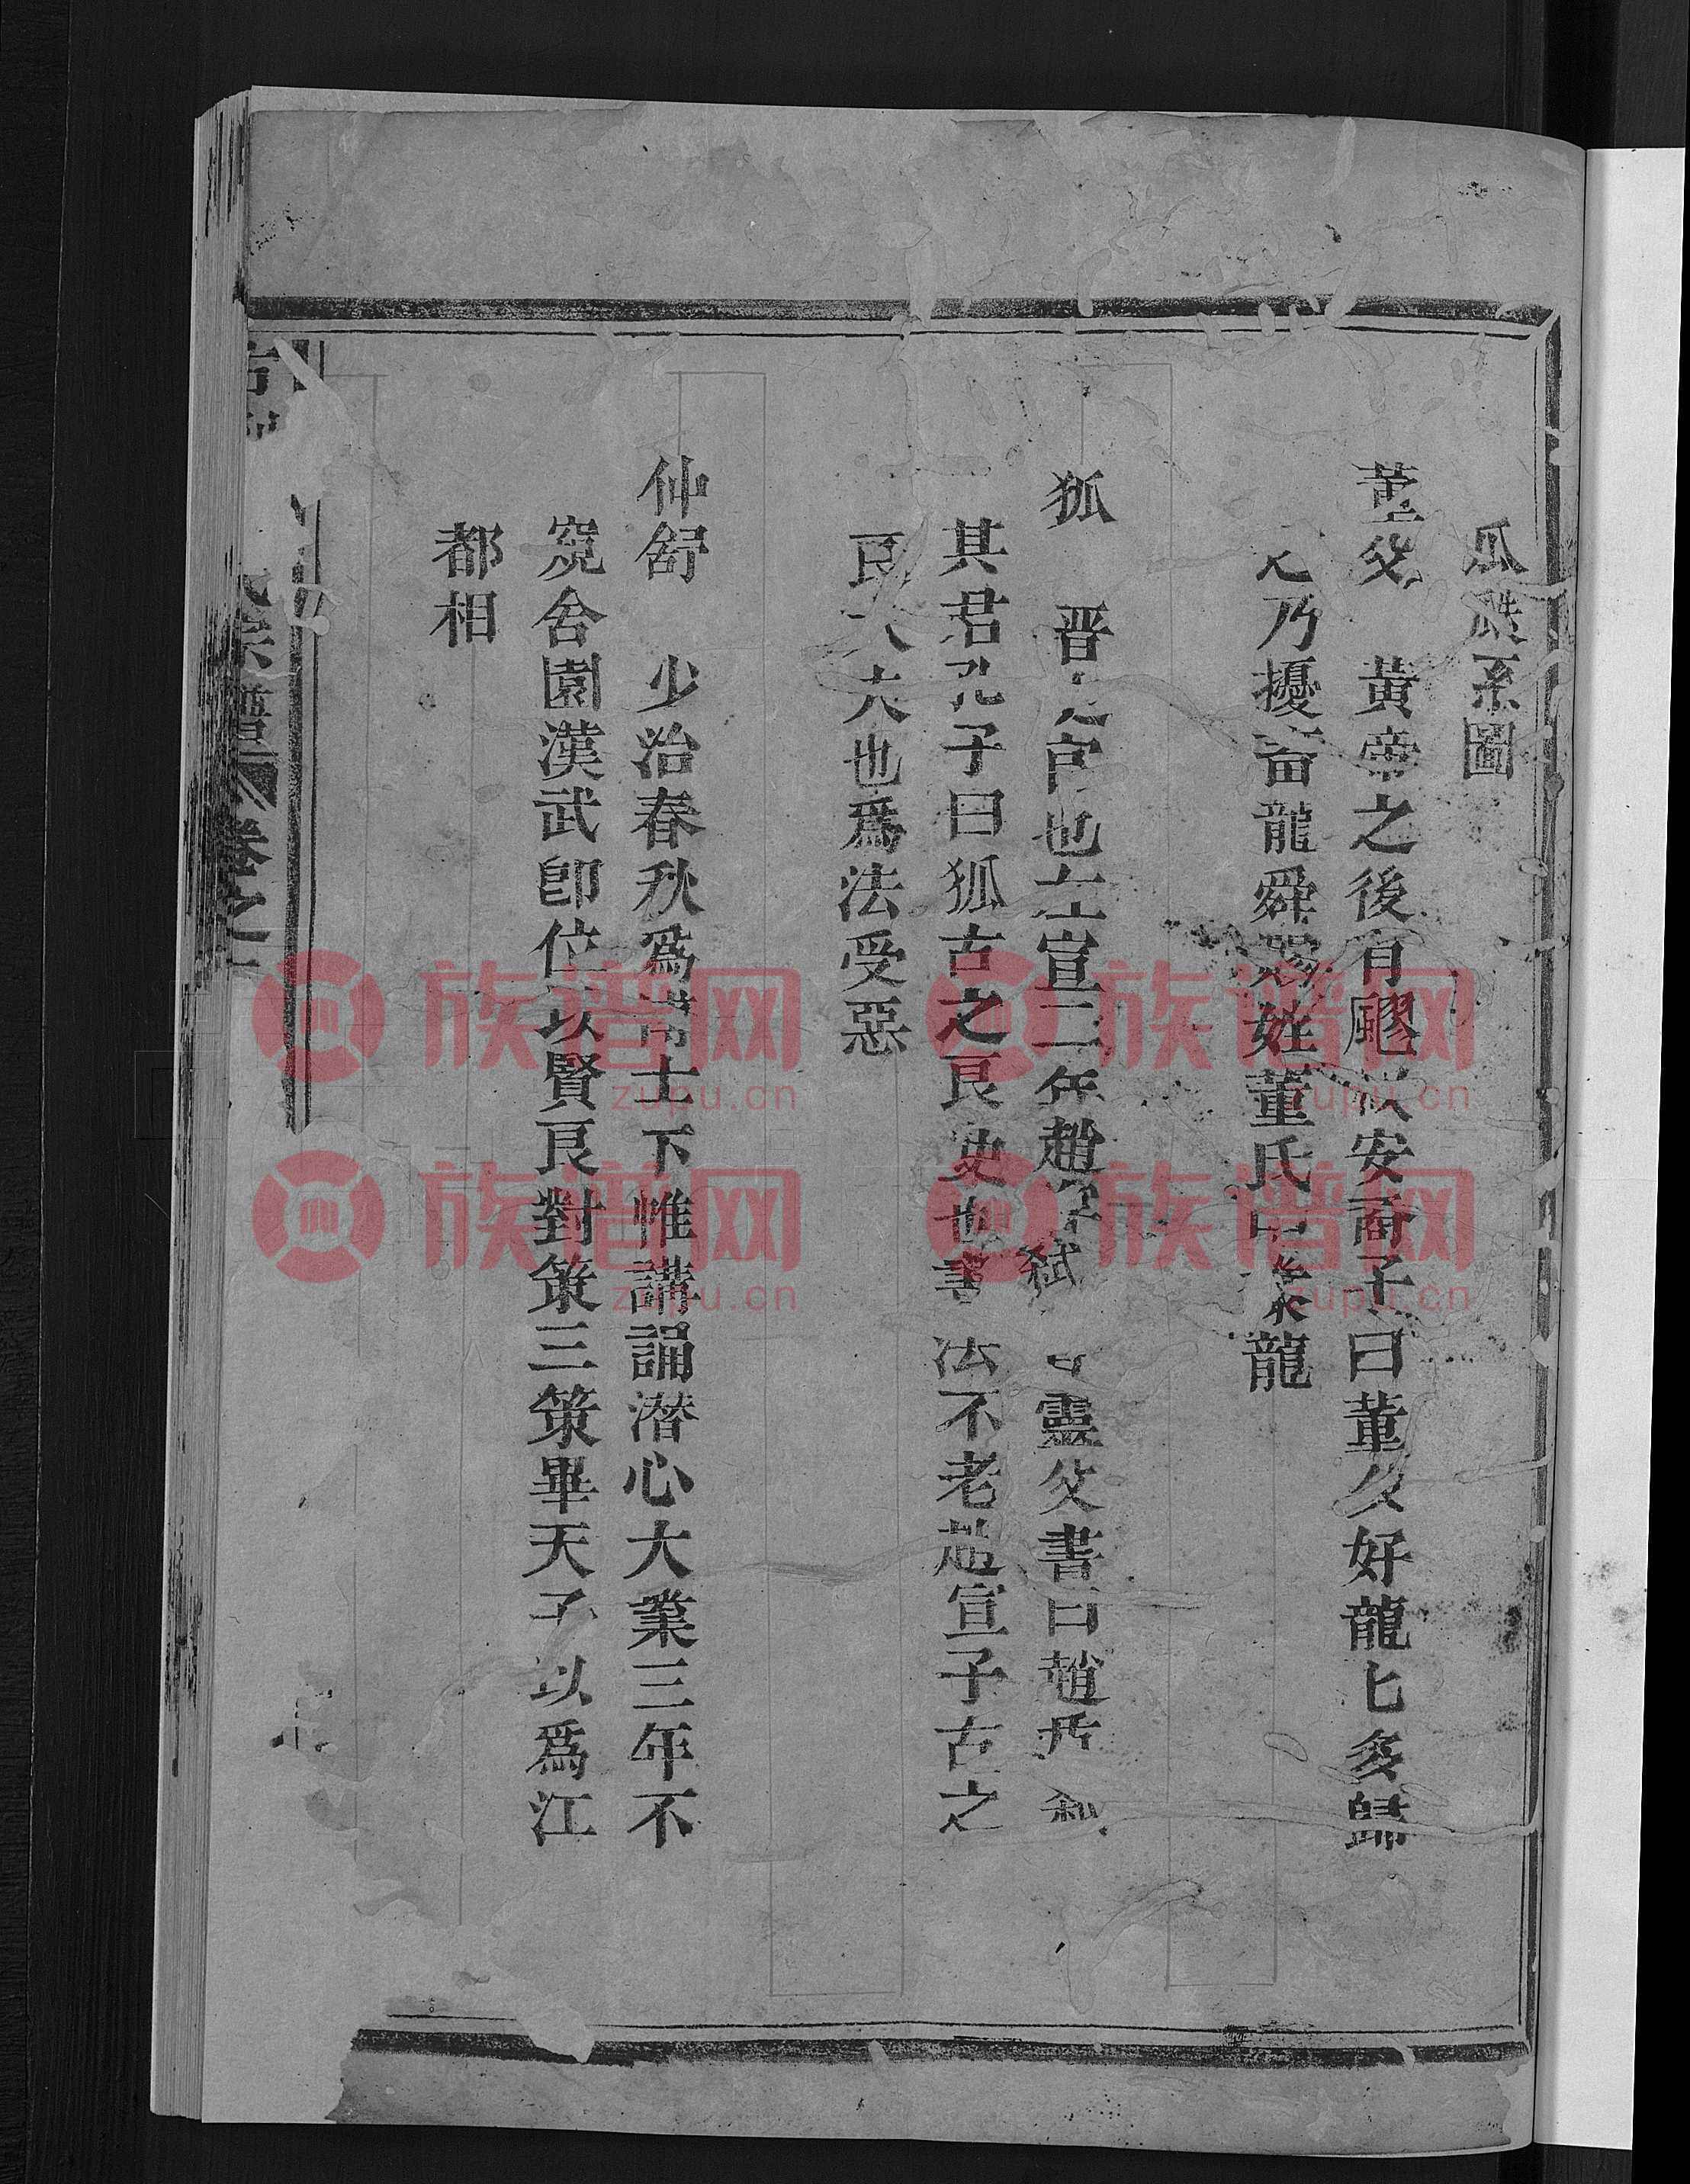 瓜瓞系圖
董父 黃帝之後有飂叔安裔子曰董父好龍龍多歸
之乃擾畜龍舜賜姓董氏曰豢龍
狐 晋史官也左宣二年趙穿弑 靈父書曰趙盾弑
其君孔子曰狐古之良史也書法不老趙宣子古之
良大夫也爲法受惡
仲舒 少治春秋爲博士下帷講誦潜心大業三年不
窺舍園漢武卽位以賢良對策三策畢天子以爲江
都相
氏宗譜 卷之
族谱网
zupu.cn
族谱网
zupu.cn
族谱网
zupu.cn
族谱网
zupu.cn